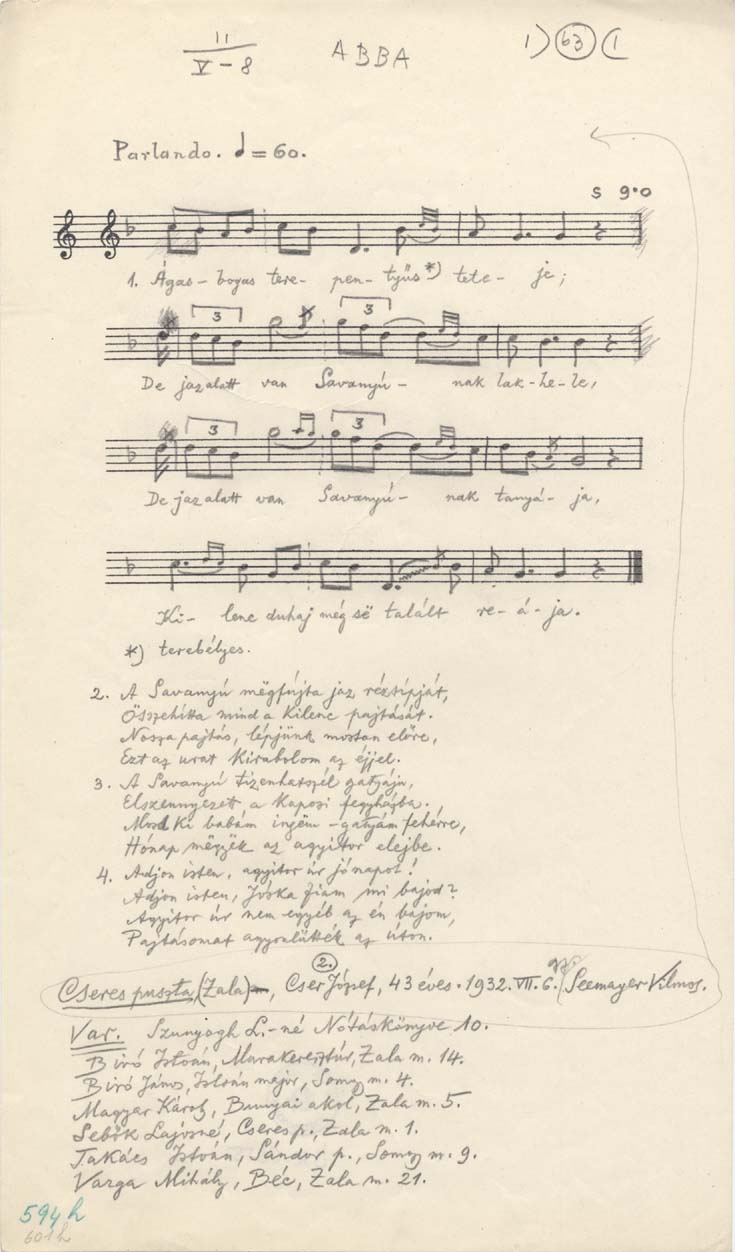 11
V-8
ABBA
1) 63 (1
Parlando. ♩=60.
S 9·0
1. Ágas-bogas tere-pen-tyüs *) tete-je;
3 3
De jaz alatt van Savanyú-nak lak-he-le,
3 3
De jaz alatt van Savanyú-nak tanyá-ja,
Ki-lenc duhaj még së talált re-á-ja.
*) terebélyes.
2. A Savanyú mëgfújta jaz rézsípját,
Összehítta mind a kilenc pajtását.
Nosza pajtás, lépjünk mostan előre,
Ezt az urat kirabolom az éjjel.
3. A Savanyú tizenhatszél gatyája,
Elszennyezett a kaposi fegyházba.
Mosd ki babám ingëm-gatyám fehérre,
Hónap mëgyëk az agyitor elejbe.
4. Adjon isten, agyitor úr jónapot!
Adjon isten, Jóska fiam mi bajod?
Agyitor úr nem egyéb az én bajom,
Pajtásomat agyonlütték az úton.
2.
Cseres puszta, (Zala), Cser József, 43 éves. 1932. VII. 6. gy. Seemayer Vilmos.
Var. Szunyogh L.-né Nótáskönyve 10.
Biró István, Murakeresztúr, Zala m. 14.
Biró János, István major, Somogy m. 4.
Magyar Károly, Bunyai akol, Zala m. 5.
Sebők Lajosné, Cseres p., Zala m. 1.
Takács István, Sándor p., Somogy m. 9.
Varga Mihály, Béc, Zala m. 21.
594h
601h